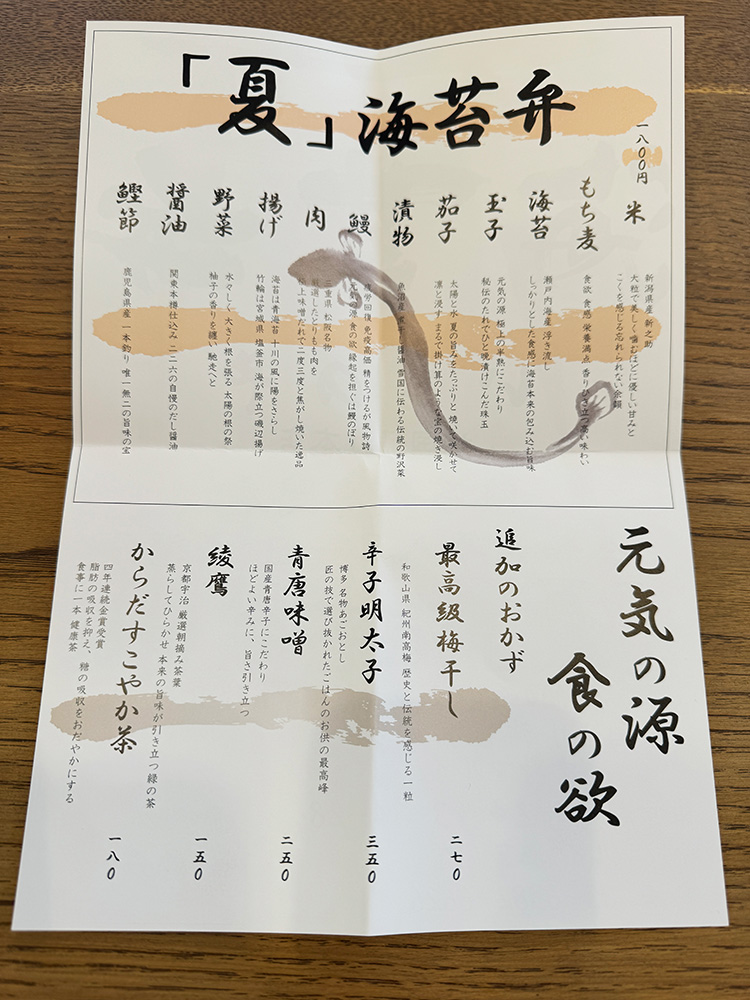 「夏」海苔弁
一八〇〇円
米
新潟県産 新之助
大粒で美しく噛むほどに優しい甘みと
こくを感じる忘れられない余韻
もち麦
食欲 食感 栄養満点 香り引き立つ 味わい
海苔
瀬戸内海産 浮き流し
しっかりとした食感に海苔本来の包み込む旨味
玉子
元気の源 極上の半熟にこだわり
秘伝のたれでひと晩漬けこんだ珠玉
茄子
太陽と水 夏の旨みをたっぷりと 焼いて咲かせて
凛と浸す まるで掛け算のような宝の焼き浸し
漬物
魚沼産 醤油 雪国に伝わる伝統の野沢菜
鰻
疲労回復 免疫高価 精をつけるが風物詩
元気の源 食の欲 縁起を担ぐは鰻のぼり
肉
三重県 松阪名物
厳選したとりもも肉を
特上味噌だれで二度三度と焦がし焼いた逸品
揚げ
海苔は青海苔 十川の風に陽をさらし
竹輪は宮城県 塩釜市 海が際立つ磯辺揚げ
野菜
水々しく大きく根を張る 太陽の根の祭
柚子の香りを纏い 馳走へと
醤油
関東本樽仕込み 二二六の自慢のだし醤油
鰹節
鹿児島県産 一本釣り 唯一無二の旨味の宝
元気の源
食の欲
追加のおかず
最高級梅干し
和歌山県 紀州南高梅 歴史と伝統を感じる一粒
二七〇
辛子明太子
博多 名物あごおとし
匠の技で選び抜かれたごはんのお供の最高峰
三五〇
青唐味噌
国産青唐辛子にこだわり
ほどよい辛みに、旨さ引き立つ
二五〇
綾鷹
京都宇治 厳選朝摘み茶葉
蒸らしてひらかせ 本来の旨味が引き立つ緑の茶
一五〇
からだすこやか茶
四年連続金賞受賞
脂肪の吸収を抑え、糖の吸収をおだやかにする
食事に一本 健康茶
一八〇